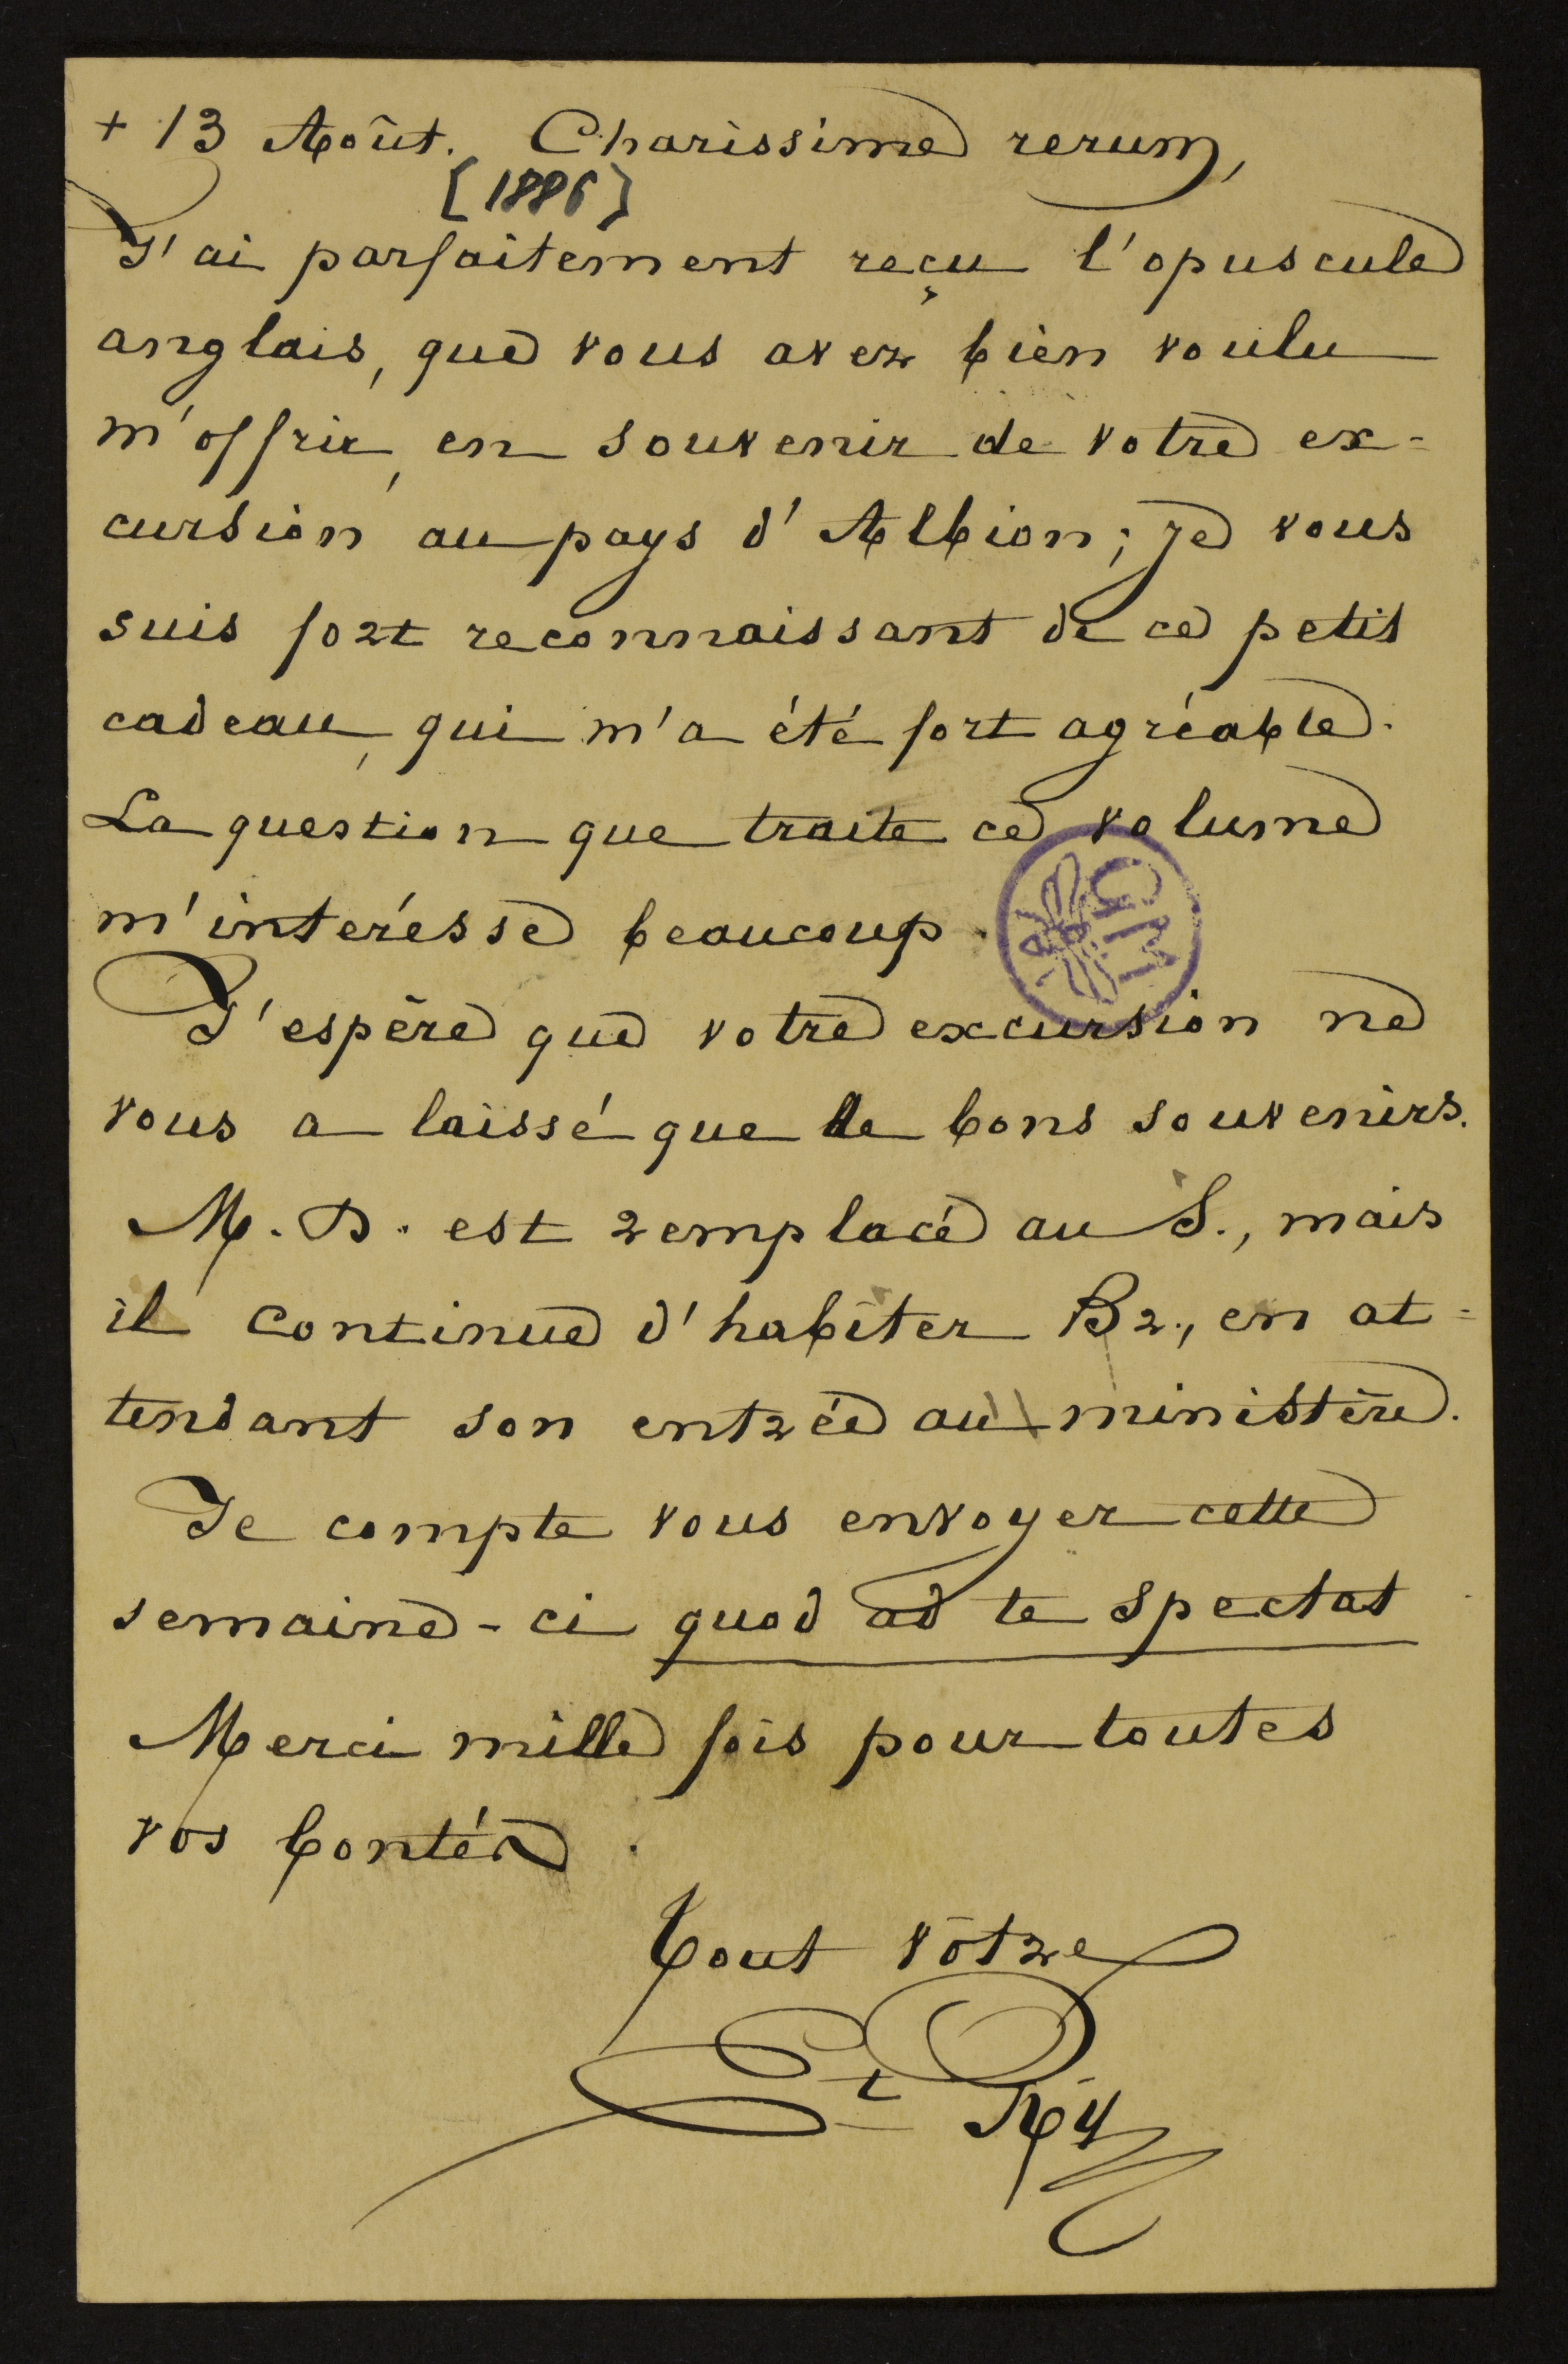 + 13 Août. Charissime rerum,
[1886]
J'ai parfaitement reçu l'opuscule
anglais, que vous avez bien voulu
m'offrir, en souvenir de votre ex=
cursion au pays d'Albion; je vous
suis fort reconnaissant de ce petit
cadeau, qui m'a été fort agréable.
La question que traite ce volume
m'intéresse beaucoup.
J'espère que votre excursion ne
vous a laissé que de bons souvenirs.
M. D. est remplacé au S., mais
il continue d'habiter Br., en at=
tendant son entrée au ministère.
Je compte vous envoyer cette
semaine-ci quod ad te spectat
Merci mille fois pour toutes
vos bontés.
Tout vôtre